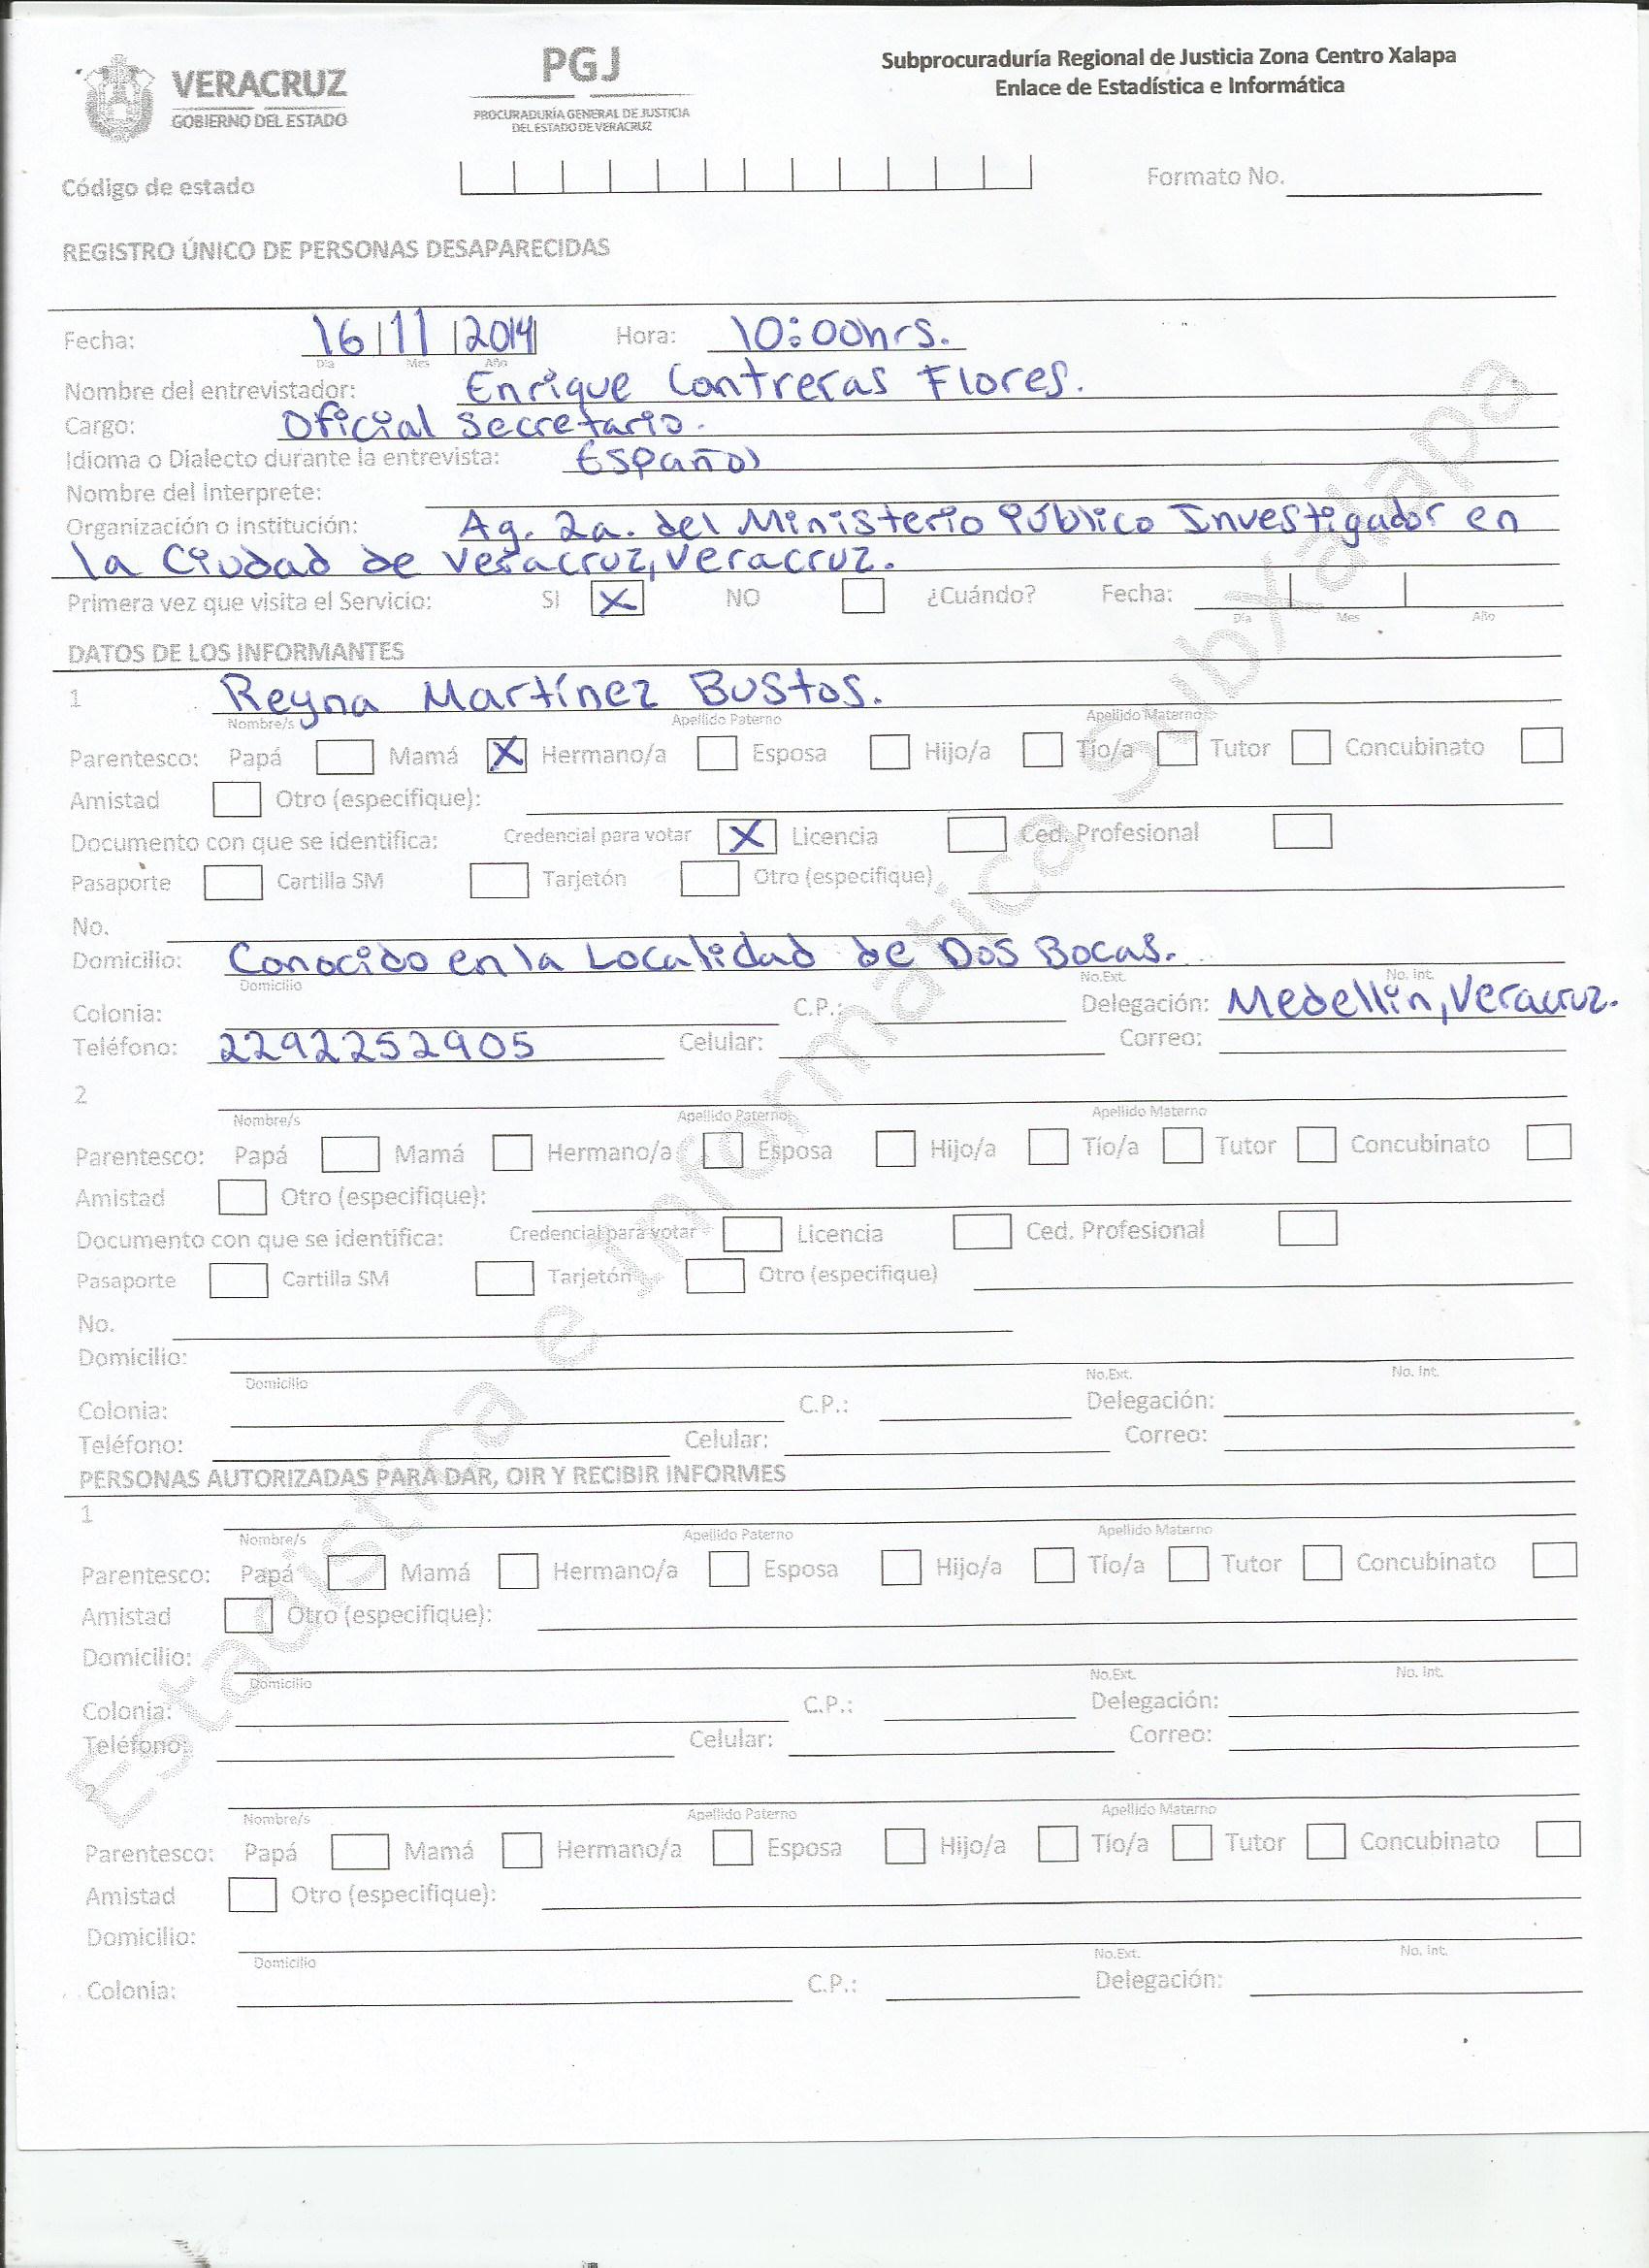 VERACRUZ
GOBIERNO DEL ESTADO
PGJ
PROCURADURÍA GENERAL DE JUSTICIA
DEL ESTADO DE VERACRUZ
Subprocuraduría Regional de Justicia Zona Centro Xalapa
Enlace de Estadística e Informática
Código de estado Formato No.
REGISTRO ÚNICO DE PERSONAS DESAPARECIDAS
Fecha: 16 11 2014 Hora: 10:00hrs.
Día Mes Año
Nombre del entrevistador: Enrique Contreras Flores.
Cargo: Oficial Secretario.
Idioma o Dialecto durante la entrevista: Español
Nombre del Interprete:
Organización o Institución: Ag. 2a. del Ministerio Público Investigador en
la Ciudad de Veracruz, Veracruz.
Primera vez que visita el Servicio: SI X NO ¿Cuándo? Fecha:
Día Mes Año
DATOS DE LOS INFORMANTES
1 Reyna Martínez Bustos.
Nombre/s Apellido Paterno Apellido Materno
Parentesco: Papá Mamá X Hermano/a Esposa Hijo/a Tío/a Tutor Concubinato
Amistad Otro (especifique):
Documento con que se identifica: Credencial para votar X Licencia Ced. Profesional
Pasaporte Cartilla SM Tarjetón Otro (especifique)
No.
Domicilio: Conocido en la Localidad de Dos Bocas.
Domicilio No.Ext. No. Int.
Colonia: C.P.: Delegación: Medellin, Veracruz.
Teléfono: 2292252905 Celular: Correo:
2
Nombre/s Apellido Paterno Apellido Materno
Parentesco: Papá Mamá Hermano/a Esposa Hijo/a Tío/a Tutor Concubinato
Amistad Otro (especifique):
Documento con que se identifica: Credencial para votar Licencia Ced. Profesional
Pasaporte Cartilla SM Tarjetón Otro (especifique)
No.
Domicilio:
Domicilio No.Ext. No. Int.
Colonia: C.P.: Delegación:
Teléfono: Celular: Correo:
PERSONAS AUTORIZADAS PARA DAR, OIR Y RECIBIR INFORMES
1
Nombre/s Apellido Paterno Apellido Materno
Parentesco: Papá Mamá Hermano/a Esposa Hijo/a Tío/a Tutor Concubinato
Amistad Otro (especifique):
Domicilio:
Domicilio No.Ext. No. Int.
Colonia: C.P.: Delegación:
Teléfono: Celular: Correo:
2
Nombre/s Apellido Paterno Apellido Materno
Parentesco: Papá Mamá Hermano/a Esposa Hijo/a Tío/a Tutor Concubinato
Amistad Otro (especifique):
Domicilio:
Domicilio No.Ext. No. Int.
Colonia: C.P.: Delegación:
Estadistica e Informatica SubXalapa